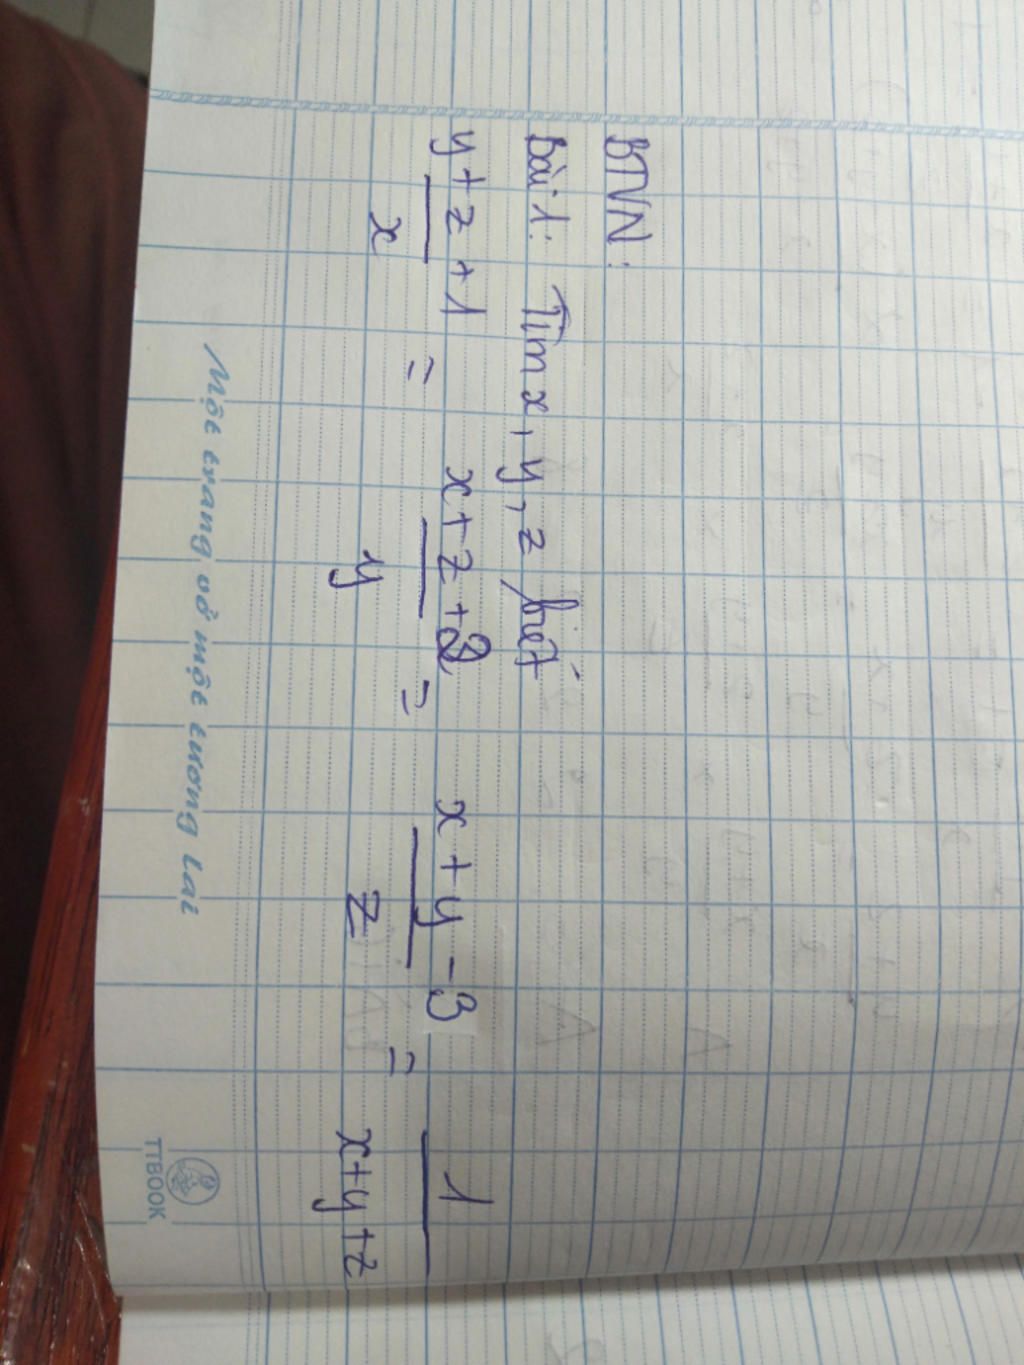 BTVN:
Bài 1: Tìm x, y, z biết
y+z+1 = x+z+2 = x+y-3 = 1
x y z x+y+z
Một trang vở một tương lai
TTBOOK